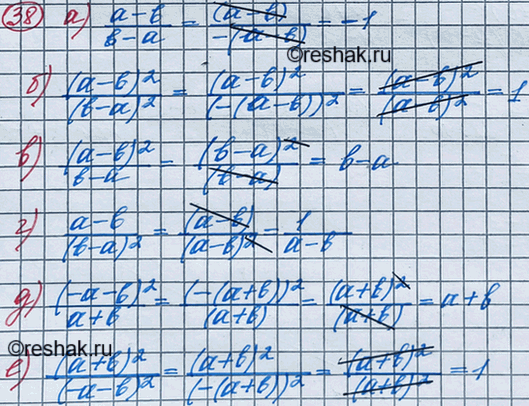 38 а) (a-b)/(b-a) = (a-b)/(-(a-b)) = -1
©reshak.ru
б) (a-b)²/(b-a)² = (a-b)²/(-(a-b))² = (a-b)²/(a-b)² = 1
в) (a-b)²/(b-a) = (b-a)²/(b-a) = b-a
г) (a-b)/(b-a)² = (a-b)/(a-b)² = 1/(a-b)
д) (-a-b)²/(a+b) = (-(a+b))²/(a+b) = (a+b)²/(a+b) = a+b
©reshak.ru
е) (a+b)²/(-a-b)² = (a+b)²/(-(a+b))² = (a+b)²/(a+b)² = 1